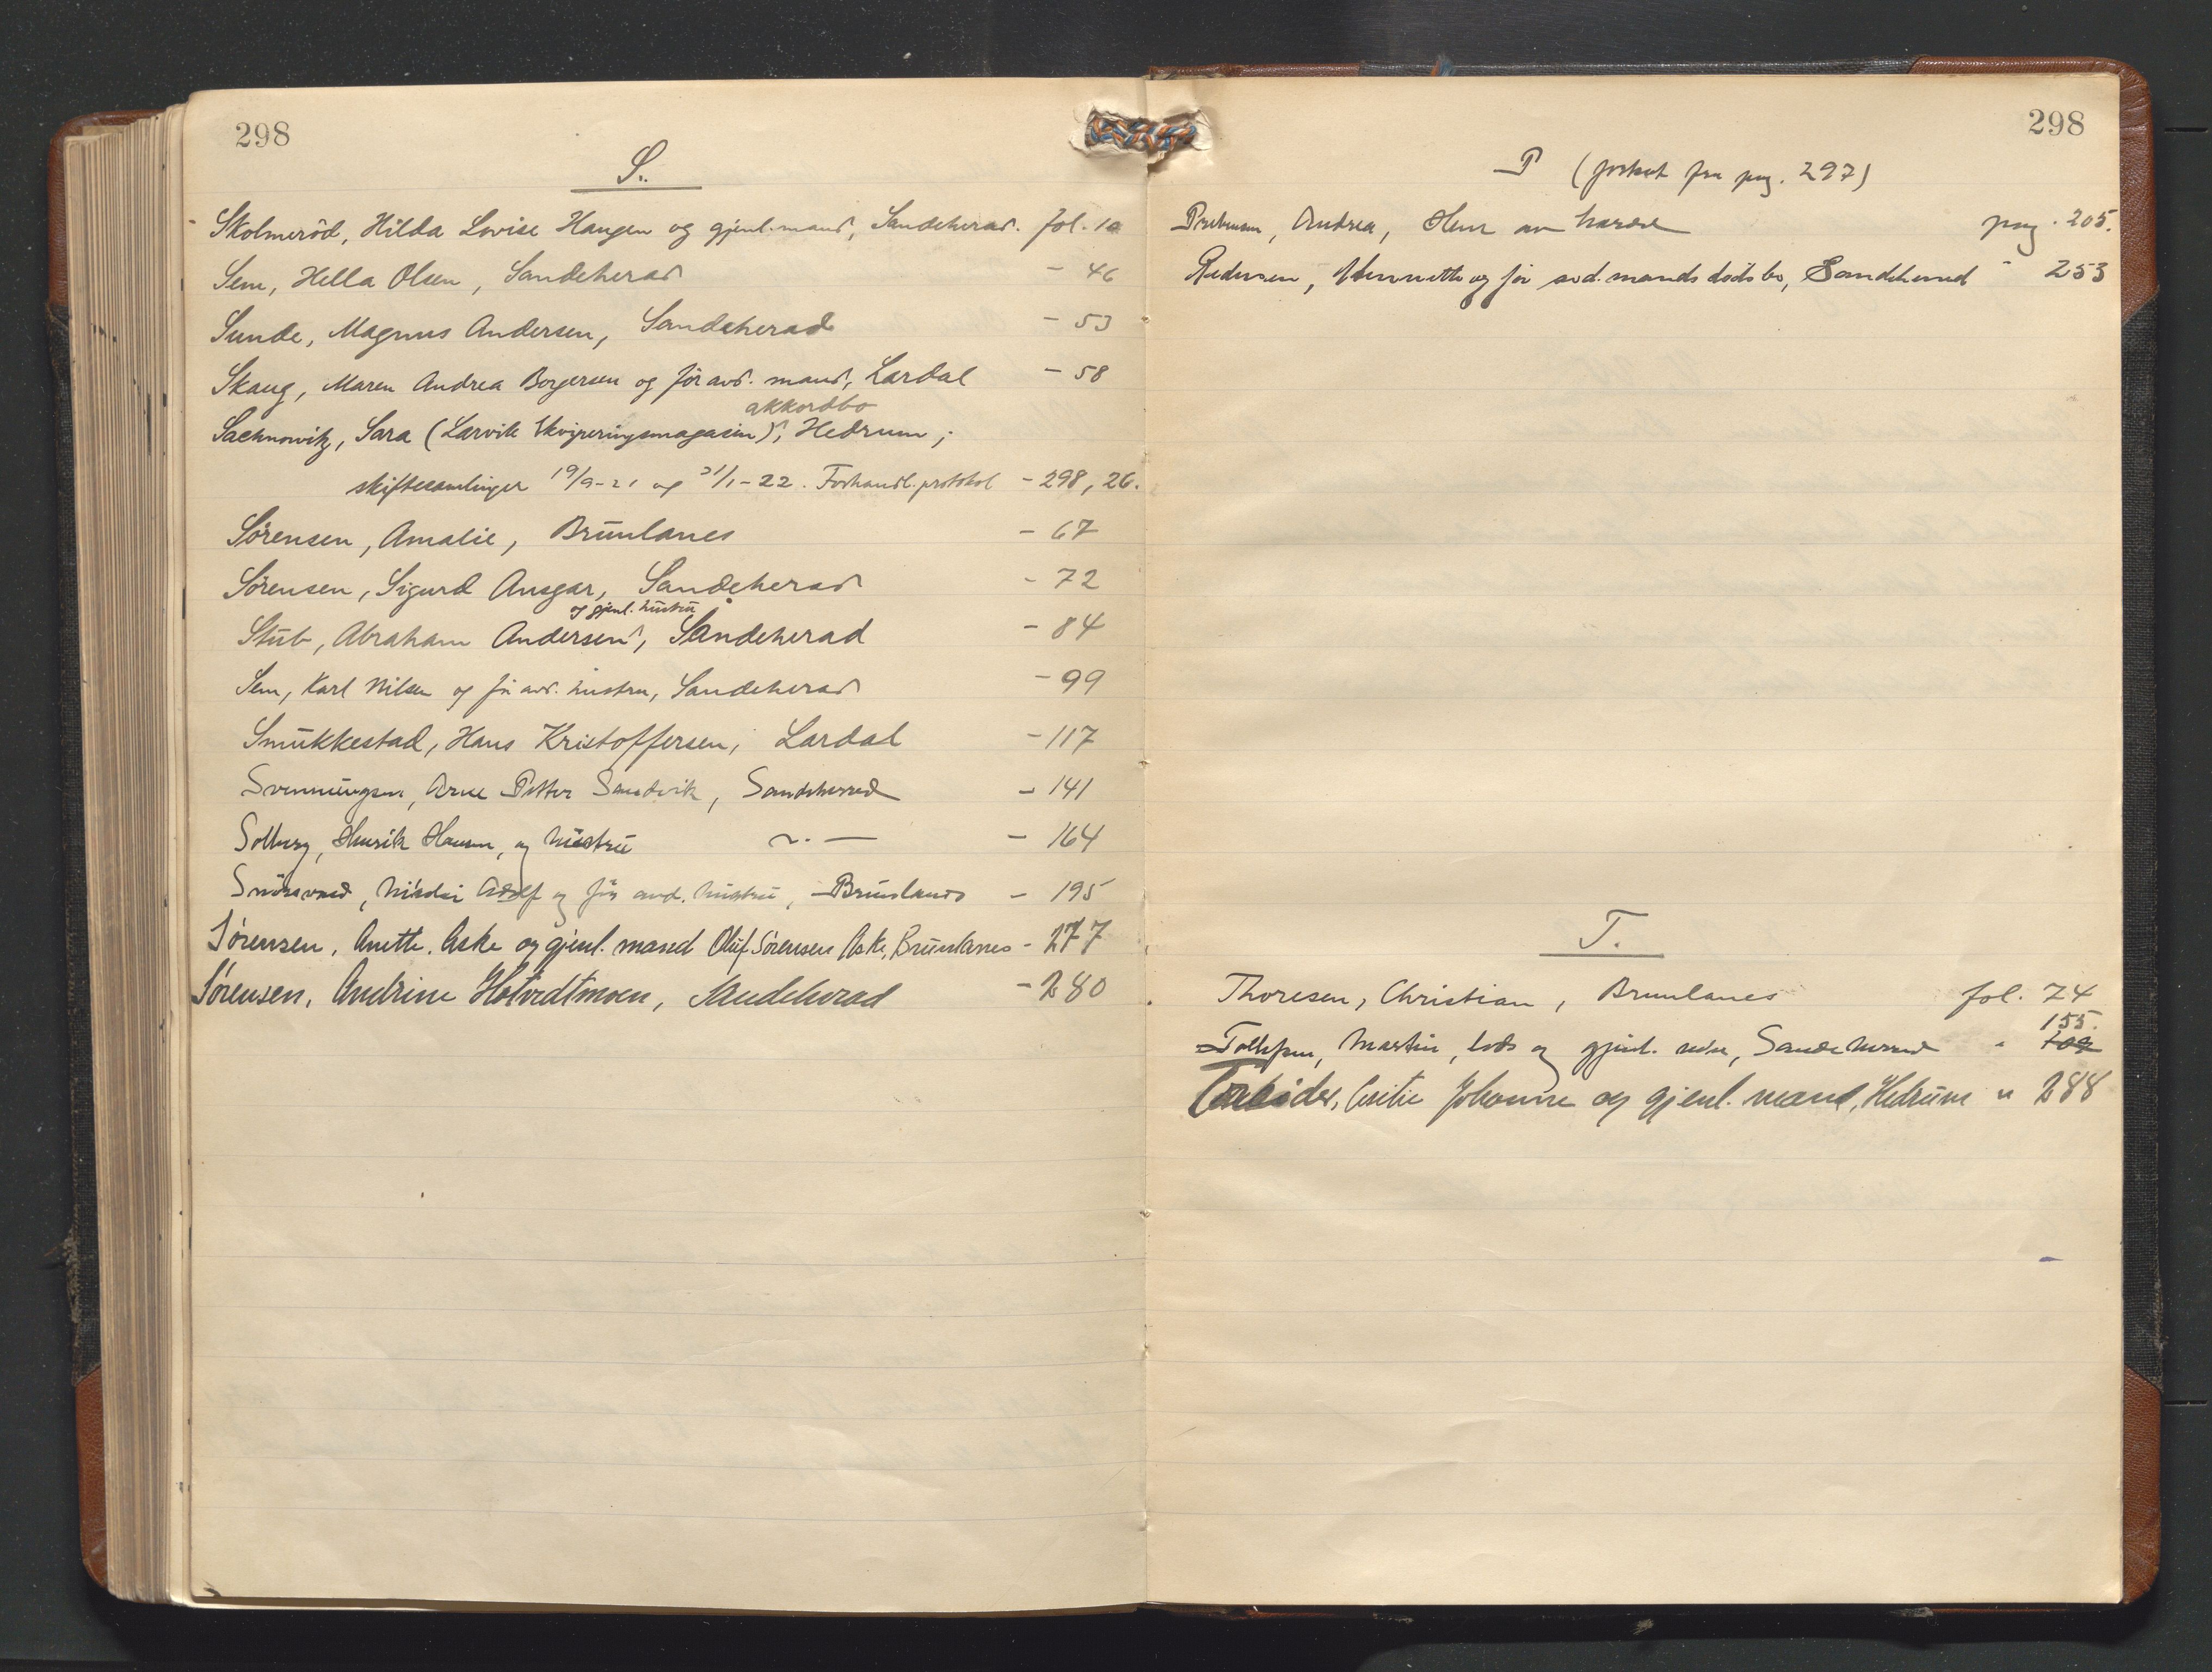 298
S.
Skolmeröd, Hilda Lovise Haugen og gjenl. mand, Sandeherad. fol. 10
Sem, Hella Olsen, Sandeherad - 46
Sunde, Magnus Andersen, Sandeherad - 53
Skaug, Maren Andrea Borgersen og før avd. mand, Lardal - 58
akkordbo
Sachnowitz, Sara (Larvik Ekviperingsmagasin), Hedrum;
skiftesamlinger 19/9-21 og 31/1-22. Forhandl.protokol - 298, 26.
Sörensen, Amalie, Brunlanes - 67
Sörensen, Sigurd Ansgar, Sandeherad - 72
og gjenl. hustru
Stub, Abraham Andersen, Sandeherad - 84
Sem, Karl Nilsen og før avd. hustru, Sandeherad - 99
Smukkestad, Hans Kristoffersen, Lardal - 117
Svenningsen, Arne Petter Sandvik, Sandeherred - 141
Solberg, Henrik Hansen, og hustru - 164
Nikolai Adolf og før avd. hustru, Brunlanes - 195
Sørensen, Anette Aske og gjenl. mand Oluf Sørensen Aske, Brunlanes - 277
Sørensen, Andrine Hotvedtmoen, Sandeherad - 280
298
P (fortsat fra pag. 297)
Andrea, pag. 205.
Pedersen, Henriette og før avd. mands dødsbo, Sandeherred " 253
T.
Thoresen, Christian, Brunlanes fol. 74
155.
Tollefsen, Martin, lods og gjenl. Sandeherred "
Johanne og gjenl. mand, Hedrum " 288